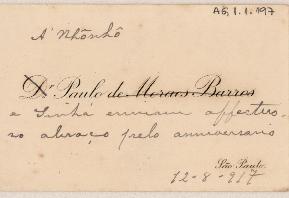 AG.1.1.197
A' Nhônhô
Dr. Paulo de Moraes Barros
e Sinhá enviam affectuo-
so abraço pelo anniversario
São Paulo.
12-8-917